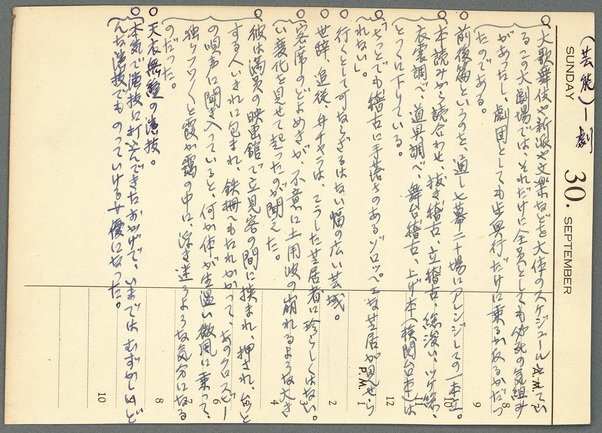 (芸能)—劇
SUNDAY 30. SEPTEMBER
○大歌舞伎や新派や文楽などを大体のスケジュールに
る二つの大劇場では、それだけに全員としても必死の気組み
があったし、劇団としても出興行だけに乗るか反るかだっ
たのである。
○前後篇というのを、通し七幕二十場にアレンジしての一本立。
○本読みから読合わせ、抜き稽古、立稽古、総浚い、ツケ総、
衣裳調べ、道具調べ、舞台稽古、上げ本(検閲台本)は
とっくに下りている。
○「ちっとでも稽古に手落ちのあるゾロッペエな芝居が見せら
れない」
○行くとして可ならざるはない幅の広い芸域。
○世辞、追従、ヤキモチは、こうした芝居者に珍らしくはない。
○客席のどよめきが、不意に土用波の崩れるような大き
い変化を見せて起ったのが聞えた。
○彼は満員の映画館で立見客の間に挟まれ、押され、むっと
する人いきれに包まれ、鉄柵へもたれかかって、あのクロスビー
の唄声に聞き入っていると、何か体が生温い微風に乗って、
独りフワフワと霞か靄の中に、浮き迷うような気分になる
のだった。
○天衣無縫の演技。
○本気で演技に打込んできたおかげで、いまではむずかしいど
んな演技でものっていける女優になった。
A.M.
8
9
10
11
12
P.M. 1
2
3
4
5
6
7
8
9
10